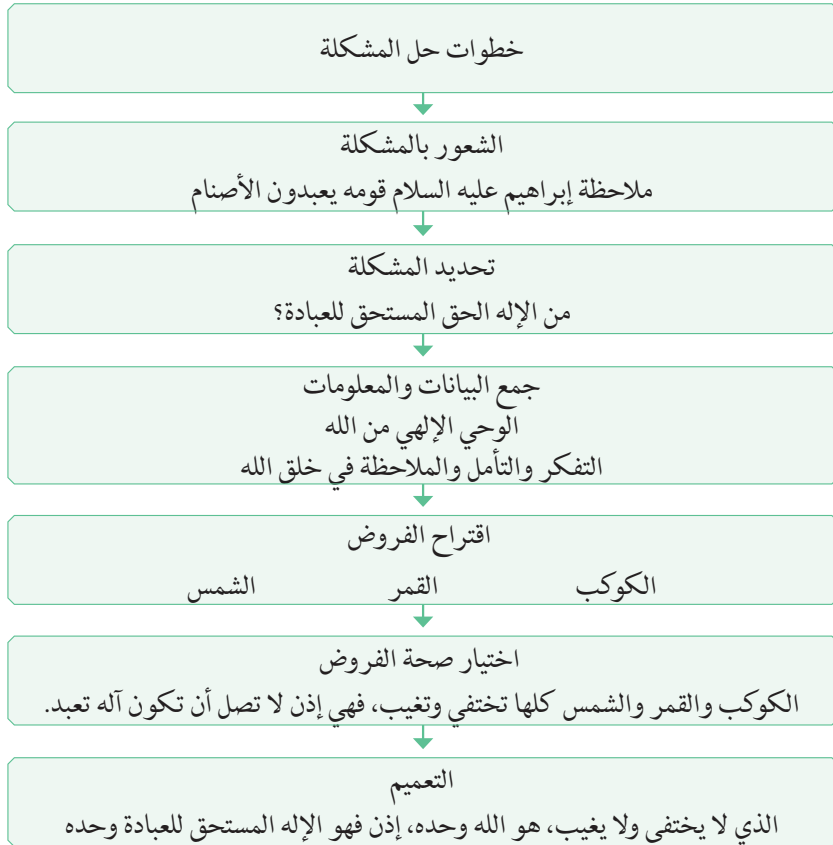 خطوات حل المشكلة
الشعور بالمشكلة
ملاحظة إبراهيم عليه السلام قومه يعبدون الأصنام
تحديد المشكلة
من الإله الحق المستحق للعبادة؟
جمع البيانات والمعلومات
الوحي الإلهي من الله
التفكر والتأمل والملاحظة في خلق الله
اقتراح الفروض
الكوكب القمر الشمس
اختيار صحة الفروض
الكوكب والقمر والشمس كلها تختفي وتغيب، فهي إذن لا تصل أن تكون آله تعبد.
التعميم
الذي لا يختفي ولا يغيب، هو الله وحده، إذن فهو الإله المستحق للعبادة وحده